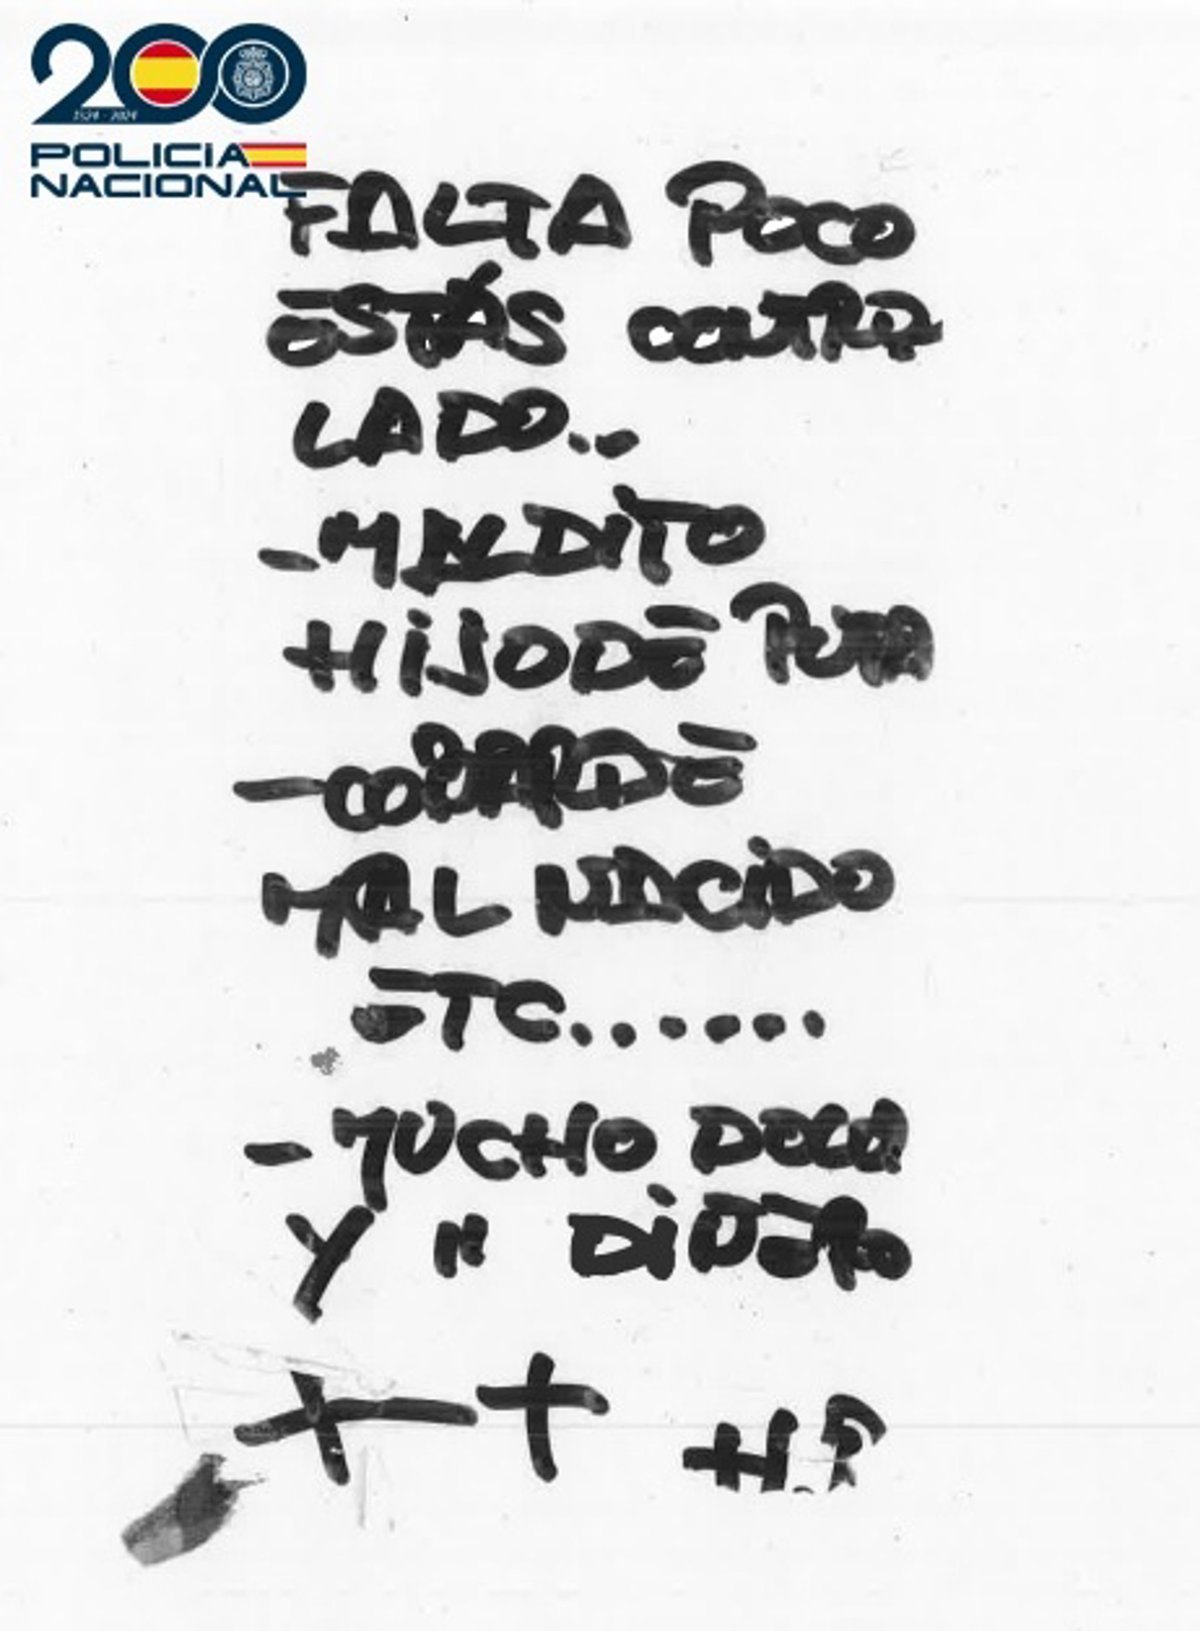 200
1824 - 2024
POLICIA
NACIONAL
FALTA POCO
ESTÁS CONTRO
LADO...
-MALDITO
HIJODE PUTA
-COBARDE
MAL NACIDO
ETC.......
-MUCHO DOLOR
Y " DINERO
H.P